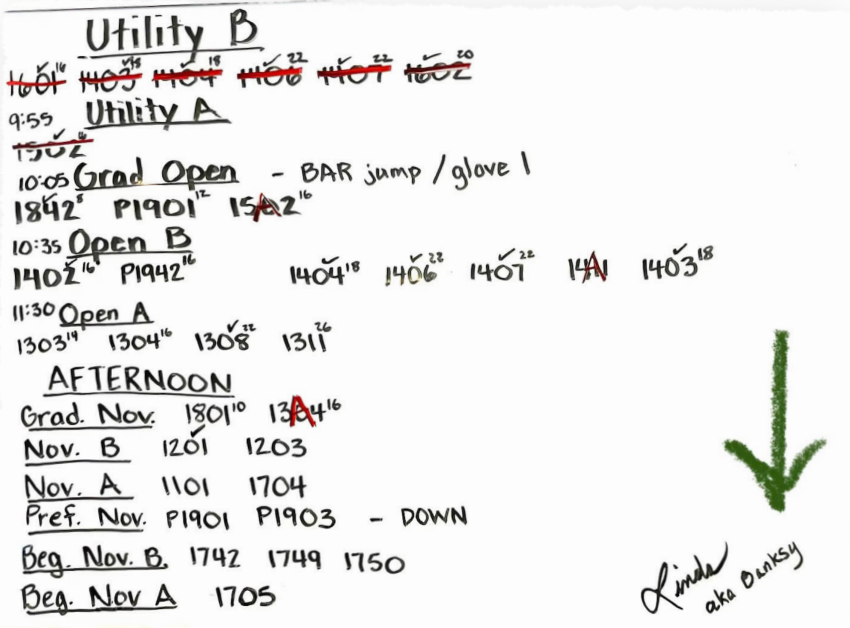 Utility B
1601¹⁶ ✓1403¹⁸ ✓1404¹⁸ ✓1406²² ✓1407²² ✓1602²⁰
9:55 Utility A
✓1502
10:05 Grad Open - BAR jump / glove 1
✓1842⁸ P1901¹² 15A2¹⁶
10:35 Open B
✓1402¹⁶ P1942¹⁶ ✓1404¹⁸ ✓1406²² ✓1407²² 14A1 ✓1403¹⁸
11:30 Open A
1303¹⁴ 1304¹⁶ ✓1308²² 1311²⁶
AFTERNOON
Grad. Nov. 1801¹⁰ 13A4¹⁶
Nov. B ✓1201 1203
Nov. A 1101 1704
Pref. Nov. P1901 P1903 - DOWN
Beg. Nov. B. 1742 1749 1750
Beg. Nov A 1705
Linda
aka Banksy